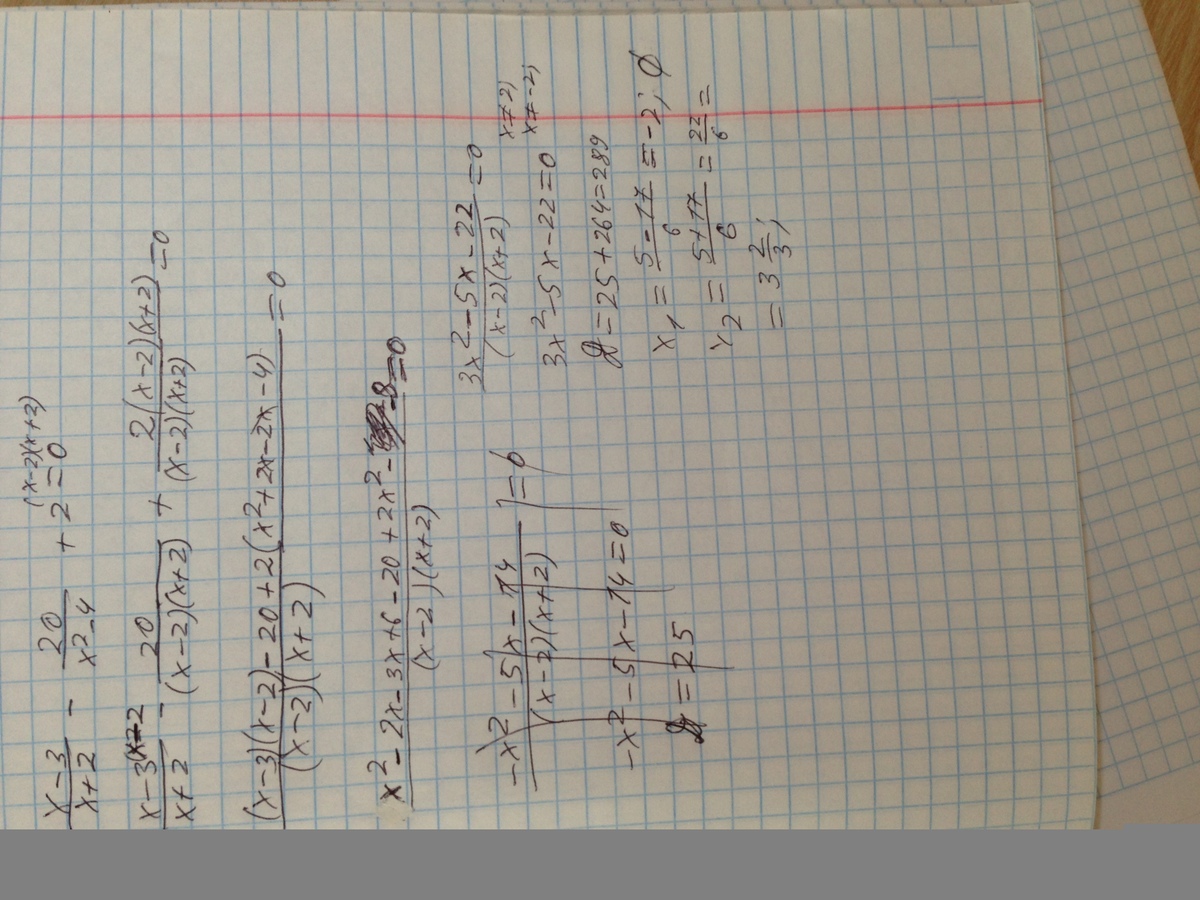 (x-2)(x+2)
x-3/x+2 - 20/x²-4 + 2 = 0
x-3(x-2/x+2 - 20/(x-2)(x+2) + 2(x-2)(x+2)/(x-2)(x+2) = 0
(x-3)(x-2)-20+2(x²+2x-2x-4)/(x-2)(x+2) = 0
x²-2x-3x+6-20+2x²-8/(x-2)(x+2) = 0
-x²-5x-14/(x-2)(x+2) = 0
-x²-5x-14=0
D = 25
3x²-5x-22/(x-2)(x+2) = 0
x≠2;
x≠-2;
3x²-5x-22=0
D=25+264=289
x₁ = 5-17/6 = -2; ∅
x₂ = 5+17/6 = 22/6 =
= 3 2/3;